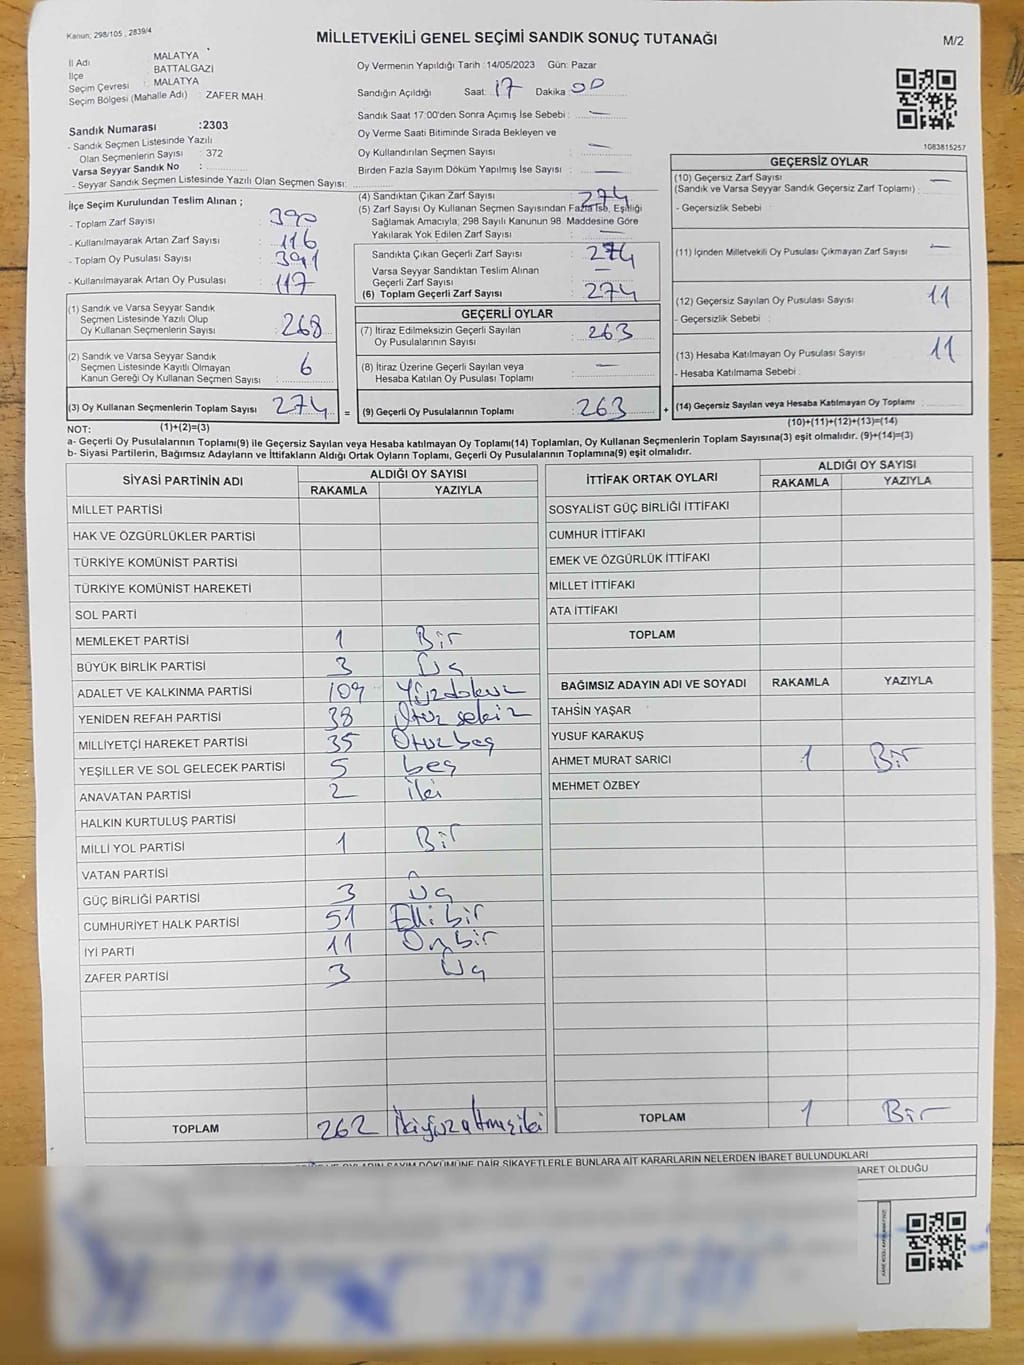 Kanun; 298/105 , 2839/4
MİLLETVEKİLİ GENEL SEÇİMİ SANDIK SONUÇ TUTANAĞI
M/2
İl Adı : MALATYA
İlçe : BATTALGAZİ
Seçim Çevresi : MALATYA
Seçim Bölgesi (Mahalle Adı) : ZAFER MAH
Sandık Numarası :2303
- Sandık Seçmen Listesinde Yazılı
Olan Seçmenlerin Sayısı : 372
Varsa Seyyar Sandık No :
- Seyyar Sandık Seçmen Listesinde Yazılı Olan Seçmen Sayısı:
Oy Vermenin Yapıldığı Tarih :14/05/2023 Gün: Pazar
Sandığın Açıldığı Saat: 17 Dakika 00
Sandık Saat 17:00'den Sonra Açımış İse Sebebi : —
Oy Verme Saati Bitiminde Sırada Bekleyen ve
Oy Kullandırılan Seçmen Sayısı : —
Birden Fazla Sayım Döküm Yapılmış İse Sayısı : —
1083815257
İlçe Seçim Kurulundan Teslim Alınan ;
- Toplam Zarf Sayısı : 390
- Kullanılmayarak Artan Zarf Sayısı : 116
- Toplam Oy Pusulası Sayısı : 391
- Kullanılmayarak Artan Oy Pusulası : 117
(1) Sandık ve Varsa Seyyar Sandık
Seçmen Listesinde Yazılı Olup
Oy Kullanan Seçmenlerin Sayısı : 268
(2) Sandık ve Varsa Seyyar Sandık
Seçmen Listesinde Kayıtlı Olmayan
Kanun Gereği Oy Kullanan Seçmen Sayısı : 6
(3) Oy Kullanan Seçmenlerin Toplam Sayısı 274 =
(1)+(2)=(3)
(4) Sandıktan Çıkan Zarf Sayısı : 274
(5) Zarf Sayısı Oy Kullanan Seçmen Sayısından Fazla İse, Eşitliği
Sağlamak Amacıyla; 298 Sayılı Kanunun 98. Maddesine Göre
Yakılarak Yok Edilen Zarf Sayısı : —
Sandıkta Çıkan Geçerli Zarf Sayısı : 274
Varsa Seyyar Sandıktan Teslim Alınan
Geçerli Zarf Sayısı : —
(6) Toplam Geçerli Zarf Sayısı : 274
GEÇERLİ OYLAR
(7) İtiraz Edilmeksizin Geçerli Sayılan
Oy Pusulalarının Sayısı : 263
(8) İtiraz Üzerine Geçerli Sayılan veya
Hesaba Katılan Oy Pusulası Toplamı : —
(9) Geçerli Oy Pusulalarının Toplamı : 263 +
GEÇERSİZ OYLAR
(10) Geçersiz Zarf Sayısı
(Sandık ve Varsa Seyyar Sandık Geçersiz Zarf Toplamı) : —
- Geçersizlik Sebebi :
(11) İçinden Milletvekili Oy Pusulası Çıkmayan Zarf Sayısı : —
(12) Geçersiz Sayılan Oy Pusulası Sayısı : 11
- Geçersizlik Sebebi :
(13) Hesaba Katılmayan Oy Pusulası Sayısı : 11
- Hesaba Katılmama Sebebi :
(14) Geçersiz Sayılan veya Hesaba Katılmayan Oy Toplamı :
(10)+(11)+(12)+(13)=(14)
NOT:
a- Geçerli Oy Pusulalarının Toplamı(9) ile Geçersiz Sayılan veya Hesaba katılmayan Oy Toplamı(14) Toplamları, Oy Kullanan Seçmenlerin Toplam Sayısına(3) eşit olmalıdır. (9)+(14)=(3)
b- Siyasi Partilerin, Bağımsız Adayların ve İttifakların Aldığı Ortak Oyların Toplamı, Geçerli Oy Pusulalarının Toplamına(9) eşit olmalıdır.
SİYASİ PARTİNİN ADI ALDIĞI OY SAYISI
RAKAMLA YAZIYLA
MİLLET PARTİSİ
HAK VE ÖZGÜRLÜKLER PARTİSİ
TÜRKİYE KOMÜNİST PARTİSİ
TÜRKİYE KOMÜNİST HAREKETİ
SOL PARTİ
MEMLEKET PARTİSİ 1 Bir
BÜYÜK BİRLİK PARTİSİ 3 Üç
ADALET VE KALKINMA PARTİSİ 109 Yüzdokuz
YENİDEN REFAH PARTİSİ 38 Otuz sekiz
MİLLİYETÇİ HAREKET PARTİSİ 35 Otuzbeş
YEŞİLLER VE SOL GELECEK PARTİSİ 5 beş
ANAVATAN PARTİSİ 2 iki
HALKIN KURTULUŞ PARTİSİ
MİLLİ YOL PARTİSİ 1 Bir
VATAN PARTİSİ
GÜÇ BİRLİĞİ PARTİSİ 3 Üç
CUMHURİYET HALK PARTİSİ 51 Elli bir
İYİ PARTİ 11 On bir
ZAFER PARTİSİ 3 Üç
TOPLAM 262 İkiyüzaltmışiki
İTTİFAK ORTAK OYLARI ALDIĞI OY SAYISI
RAKAMLA YAZIYLA
SOSYALİST GÜÇ BİRLİĞİ İTTİFAKI
CUMHUR İTTİFAKI
EMEK VE ÖZGÜRLÜK İTTİFAKI
MİLLET İTTİFAKI
ATA İTTİFAKI
TOPLAM
BAĞIMSIZ ADAYIN ADI VE SOYADI RAKAMLA YAZIYLA
TAHSİN YAŞAR
YUSUF KARAKUŞ
AHMET MURAT SARICI 1 Bir
MEHMET ÖZBEY
TOPLAM 1 Bir
OYLARIN SAYIM DÖKÜMÜNE DAİR ŞİKAYETLERLE BUNLARA AİT KARARLARIN NELERDEN İBARET BULUNDUKLARI
İBARET OLDUĞU